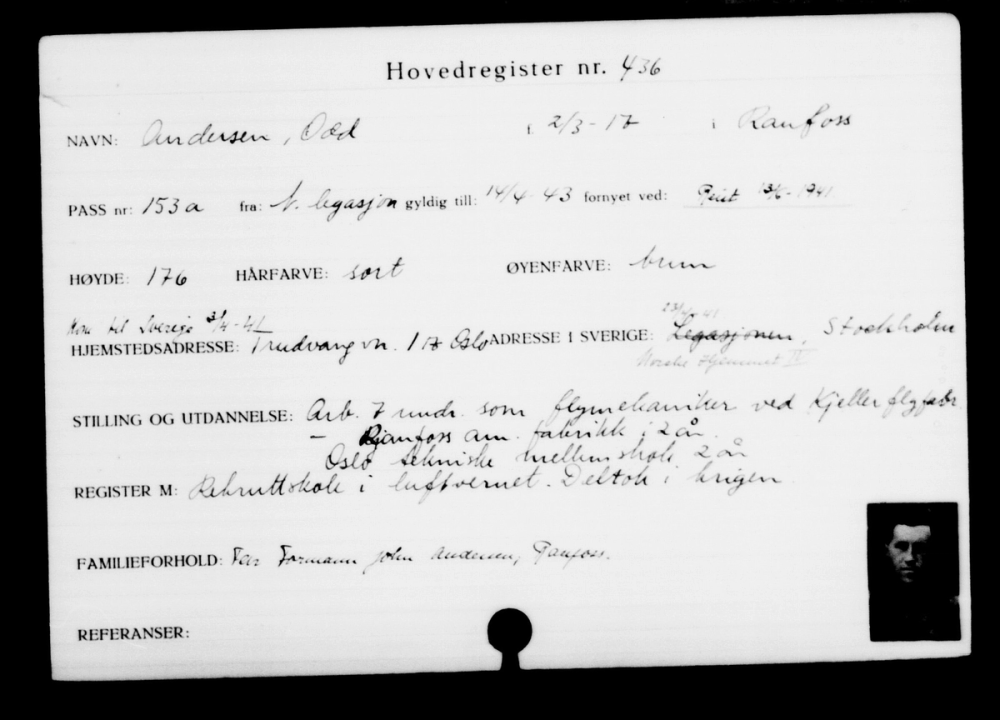 Hovedregister nr. 436
NAVN: Andersen, Odd f. 2/3-17 i Raufoss
PASS nr: 153a fra: N. legasjon gyldig till: 14/4 43 fornyet ved: 1941
HØYDE: 176 HÅRFARVE: sort ØYENFARVE: brun
Kom til Sverige 3/4-41 23/ -41
HJEMSTEDSADRESSE: Trudvangvn. 17 Oslo ADRESSE I SVERIGE: Legasjonen, Stockholm
Norske Hjemmet IV
STILLING OG UTDANNELSE: Arb. 7 mndr. som flymekaniker ved Kjeller flyfabr
- Raufoss am. fabrikk i 2 år.
Oslo tekniske mellemskole 2 år
REGISTER M: Rekruttskole i luftvernet. Deltok i krigen.
FAMILIEFORHOLD: Far Formann John Andersen, Raufoss.
REFERANSER: